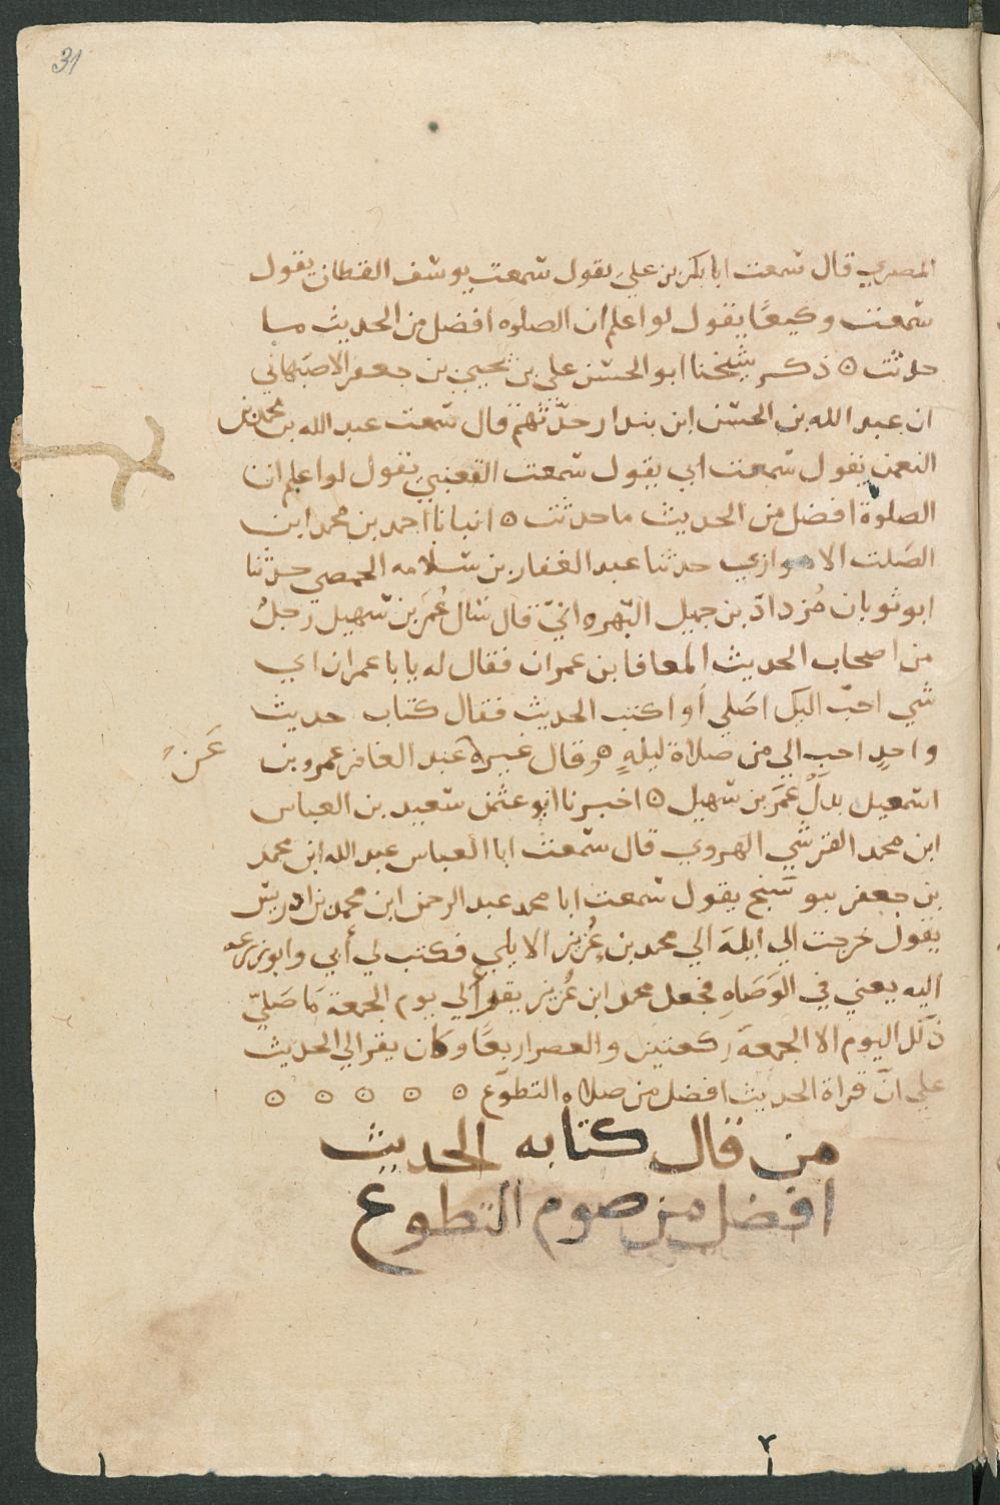 31
المصري قال سمعت ابا بكر بن علي يقول سمعت يوسف القطان يقول
سمعت وكيعًا يقول لو اعلم ان الصلوه افضل من الحديث ما
حدثت ۞ ذكر شيخنا ابو الحسن علي بن يحيى بن جعفر الاصبهاني
ان عبد الله بن الحسن ابن بندار حدّثهم قال سمعت عبد الله بن محمد بن
النعمن يقول سمعت ابي يقول سمعت القعنبي يقول لو اعلم ان
الصلوة افضل من الحديث ما حدثت ۞ انبانا احمد بن محمد ابن
الصلت الاهوازي حدثنا عبد الغفار بن سلامه الحمصي حدثنا
ابو ثوبان مُزداد بن جميل البهراني قال سال عُمَر بن سهيل رجلٌ
من اصحاب الحديث المعافا بن عمران فقال له يابا عمران اي
شي احبّ اليك اصلي أو اكتب الحديث فقال كتاب حديث
واحدٍ احب الي من صلاة ليلهٍ ۞ وقال غيره عبد الغافر عمرو بن
عَن
اسمعيل بدل عمر بن سهيل ۞ اخبرنا ابو عثمن سعيد بن العباس
ابن محمد القرشي الهروي قال سمعت ابا العباس عبد الله ابن محمد
بن جعفر ببوسنج يقول سمعت ابا محمد عبد الرحمن ابن محمد بن ادريس
يقول خرجت الي ايلة الي محمد بن عُزيز الايلي فكتب لي أبي وابو زرعه
اليه يعني في الوَصَاهِ فجعل محمد ابن عُزيز يقرأ لي يوم الجمعة مَا صَليّ
ذلك اليوم الا الجمعة ركعتين والعصر اربعًا وكان يقرا لي الحديث
علي انّ قراة الحديث افضل من صلاه التطوّع ۞ ۞ ۞ ۞ ۞
من قال كتابه الحديث
افضل من صوم التطوع